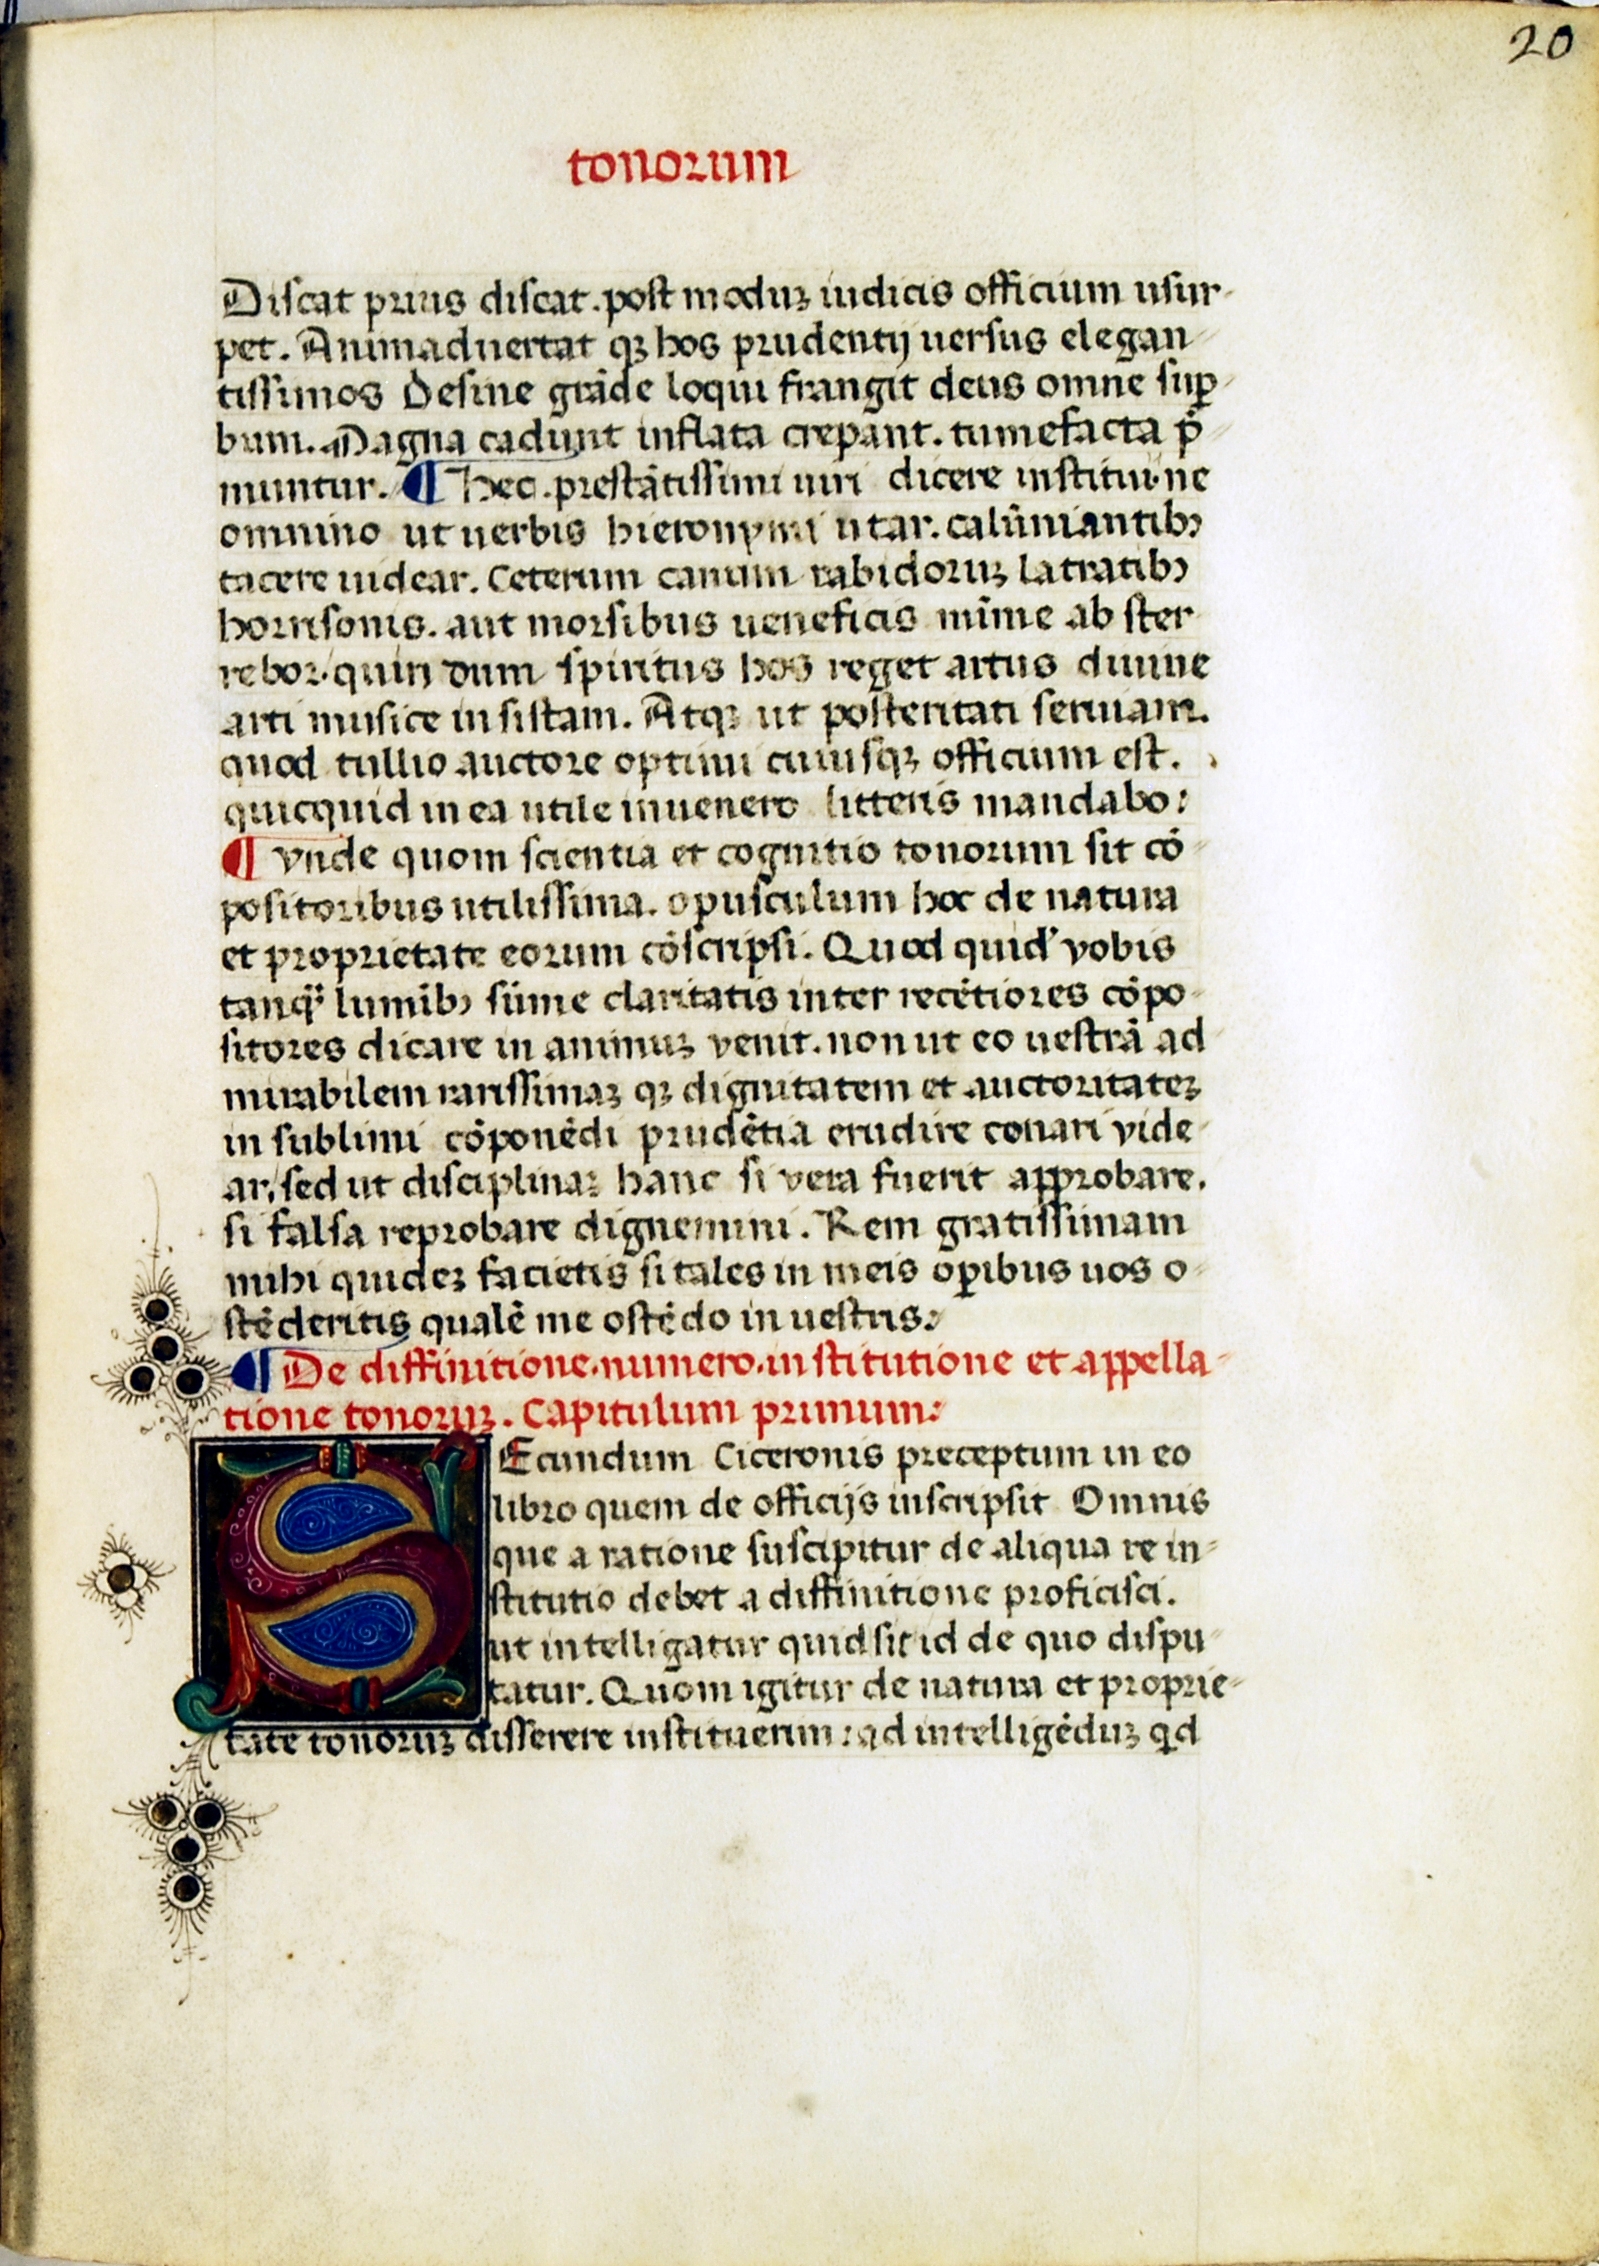 20
tonorum
Discat prius discat. post moduꝫ iudicis officium usur-
pet. Animaduertat qꝫ hos prudentij uersus elegan-
tissimos Desine grāde loqui frangit deus omne suꝑ-
bum. Magna cadunt inflata crepant. tumefacta p̄-
muntur. ¶ Hec. prestātissimi uiri dicere institui. ne
omnino ut uerbis hieronymi utar. calūniantibꝰ
tacere uidear. Ceterum canum rabidoruꝫ latratibꝰ
horrisonis. aut morsibus ueneficis mīme ab ster
rebor. quin dum spiritus hos reget artus diuine
arti musice insistam. Atqꝫ ut posteritati seruiam.
quod tullio auctore optimi cuiusqꝫ officium est.
quicquid in ea utile inuenero litteris mandabo:
¶ Vnde quom scientia et cognitio tonorum sit cō-
positoribus utilissima. opusculum hoc de natura
et proprietate eorum cōscripsi. Quod quid' vobis
tanqᷓ lumībꝰ sūme claritatis inter recētiores cōpo-
sitores dicare in animuꝫ venit. non ut eo uestrā ad
mirabilem rarissimaꝫ qꝫ dignitatem et auctoritateꝫ
in sublimi cōponēdi prudētia erudire conari vide-
ar, sed ut disciplinaꝫ hanc si vera fuerit approbare.
si falsa reprobare dignemini. Rem gratissimam
mihi quideꝫ facietis si tales in meis oꝑibus uos o-
stēderitis qualē me ostēdo in uestris:
¶ De diffinitione. numero. institutione et appella-
tione tonoruꝫ. Capitulum primum:
SEcundum Ciceronis preceptum in eo
libro quem de officijs inscripsit Omnis
que a ratione suscipitur de aliqua re in-
stitutio debet a diffinitione proficisci.
ut intelligatur quid sit id de quo dispu-
tatur. Quom igitur de natura et proprie-
tate tonoruꝫ disserere instituerim: ad intelligēduꝫ qd